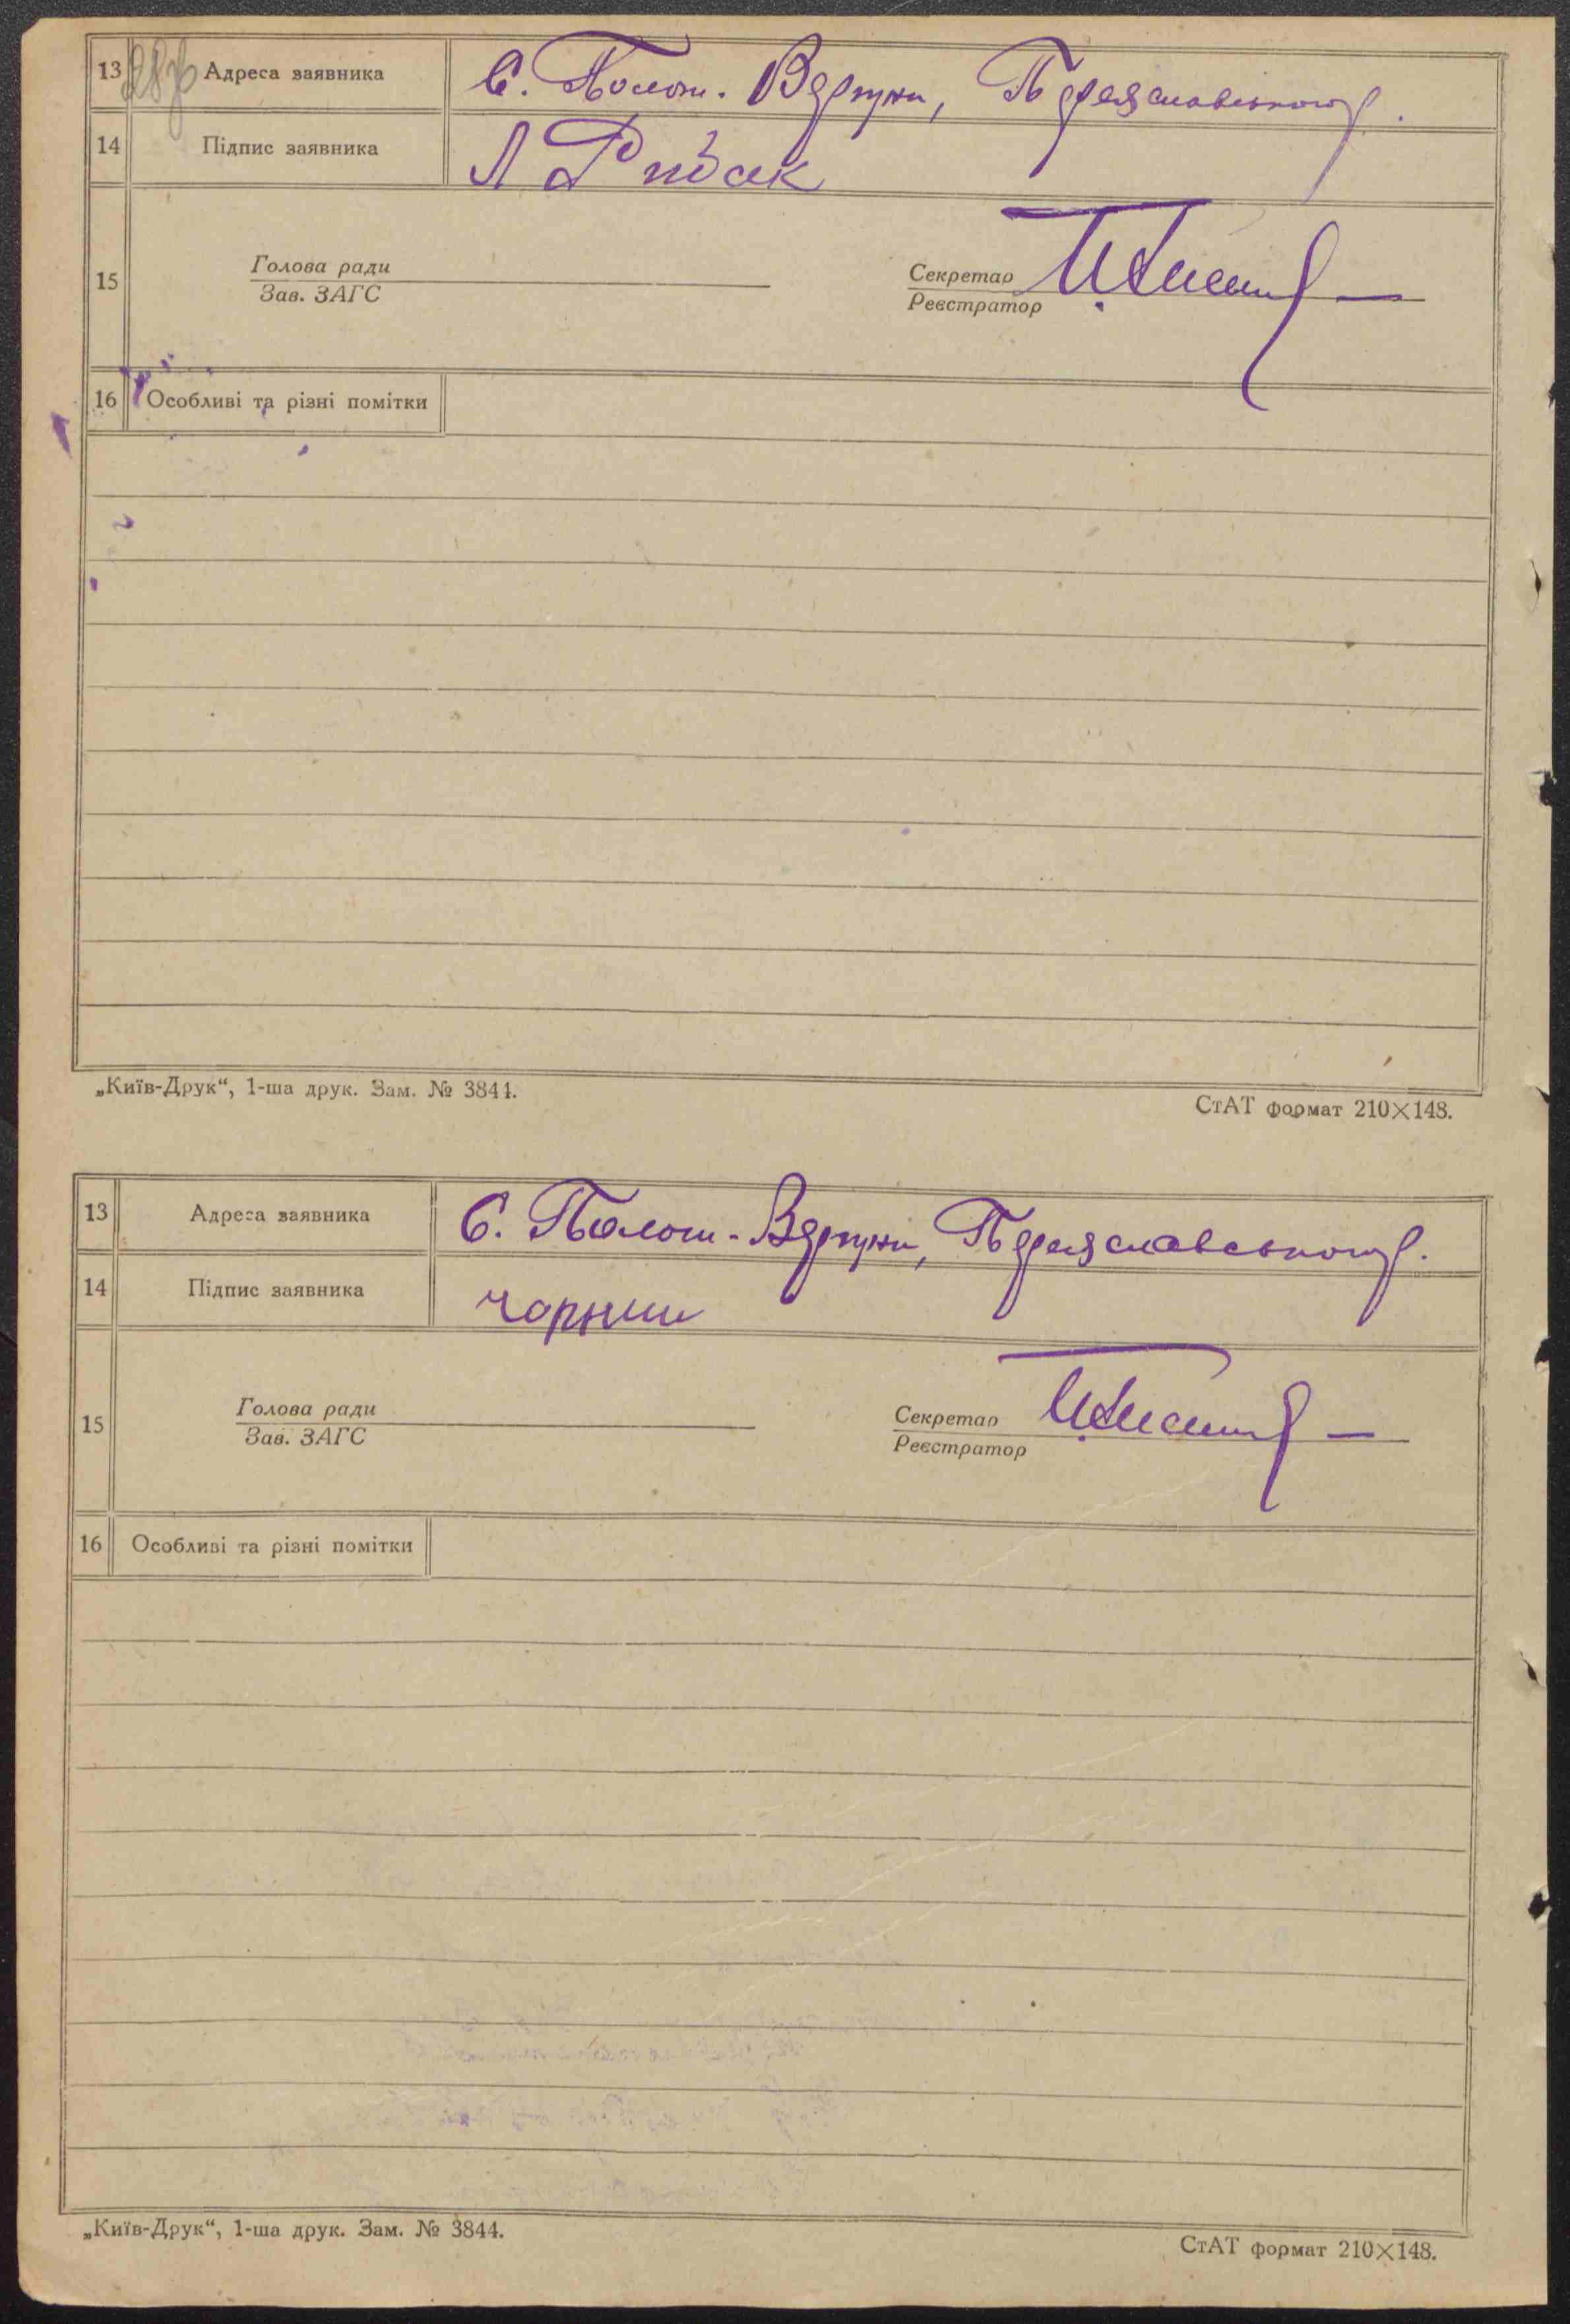 13 Адреса заявника С. Полож. Вергуни, Переяславського р.
14 Підпис заявника
15 Голова ради Секретар
Зав. ЗАГС Реєстратор
16 Особливі та різні помітки
„Київ-Друк“, 1-ша друк. Зам. № 3844.
СтАТ формат 210×148.
13 Адреса заявника С. Полож.-Вергуни, Переяславського р.
14 Підпис заявника чорнии
15 Голова ради Секретар
Зав. ЗАГС Реєстратор
16 Особливі та різні помітки
„Київ-Друк“, 1-ша друк. Зам. № 3844.
СтАТ формат 210×148.